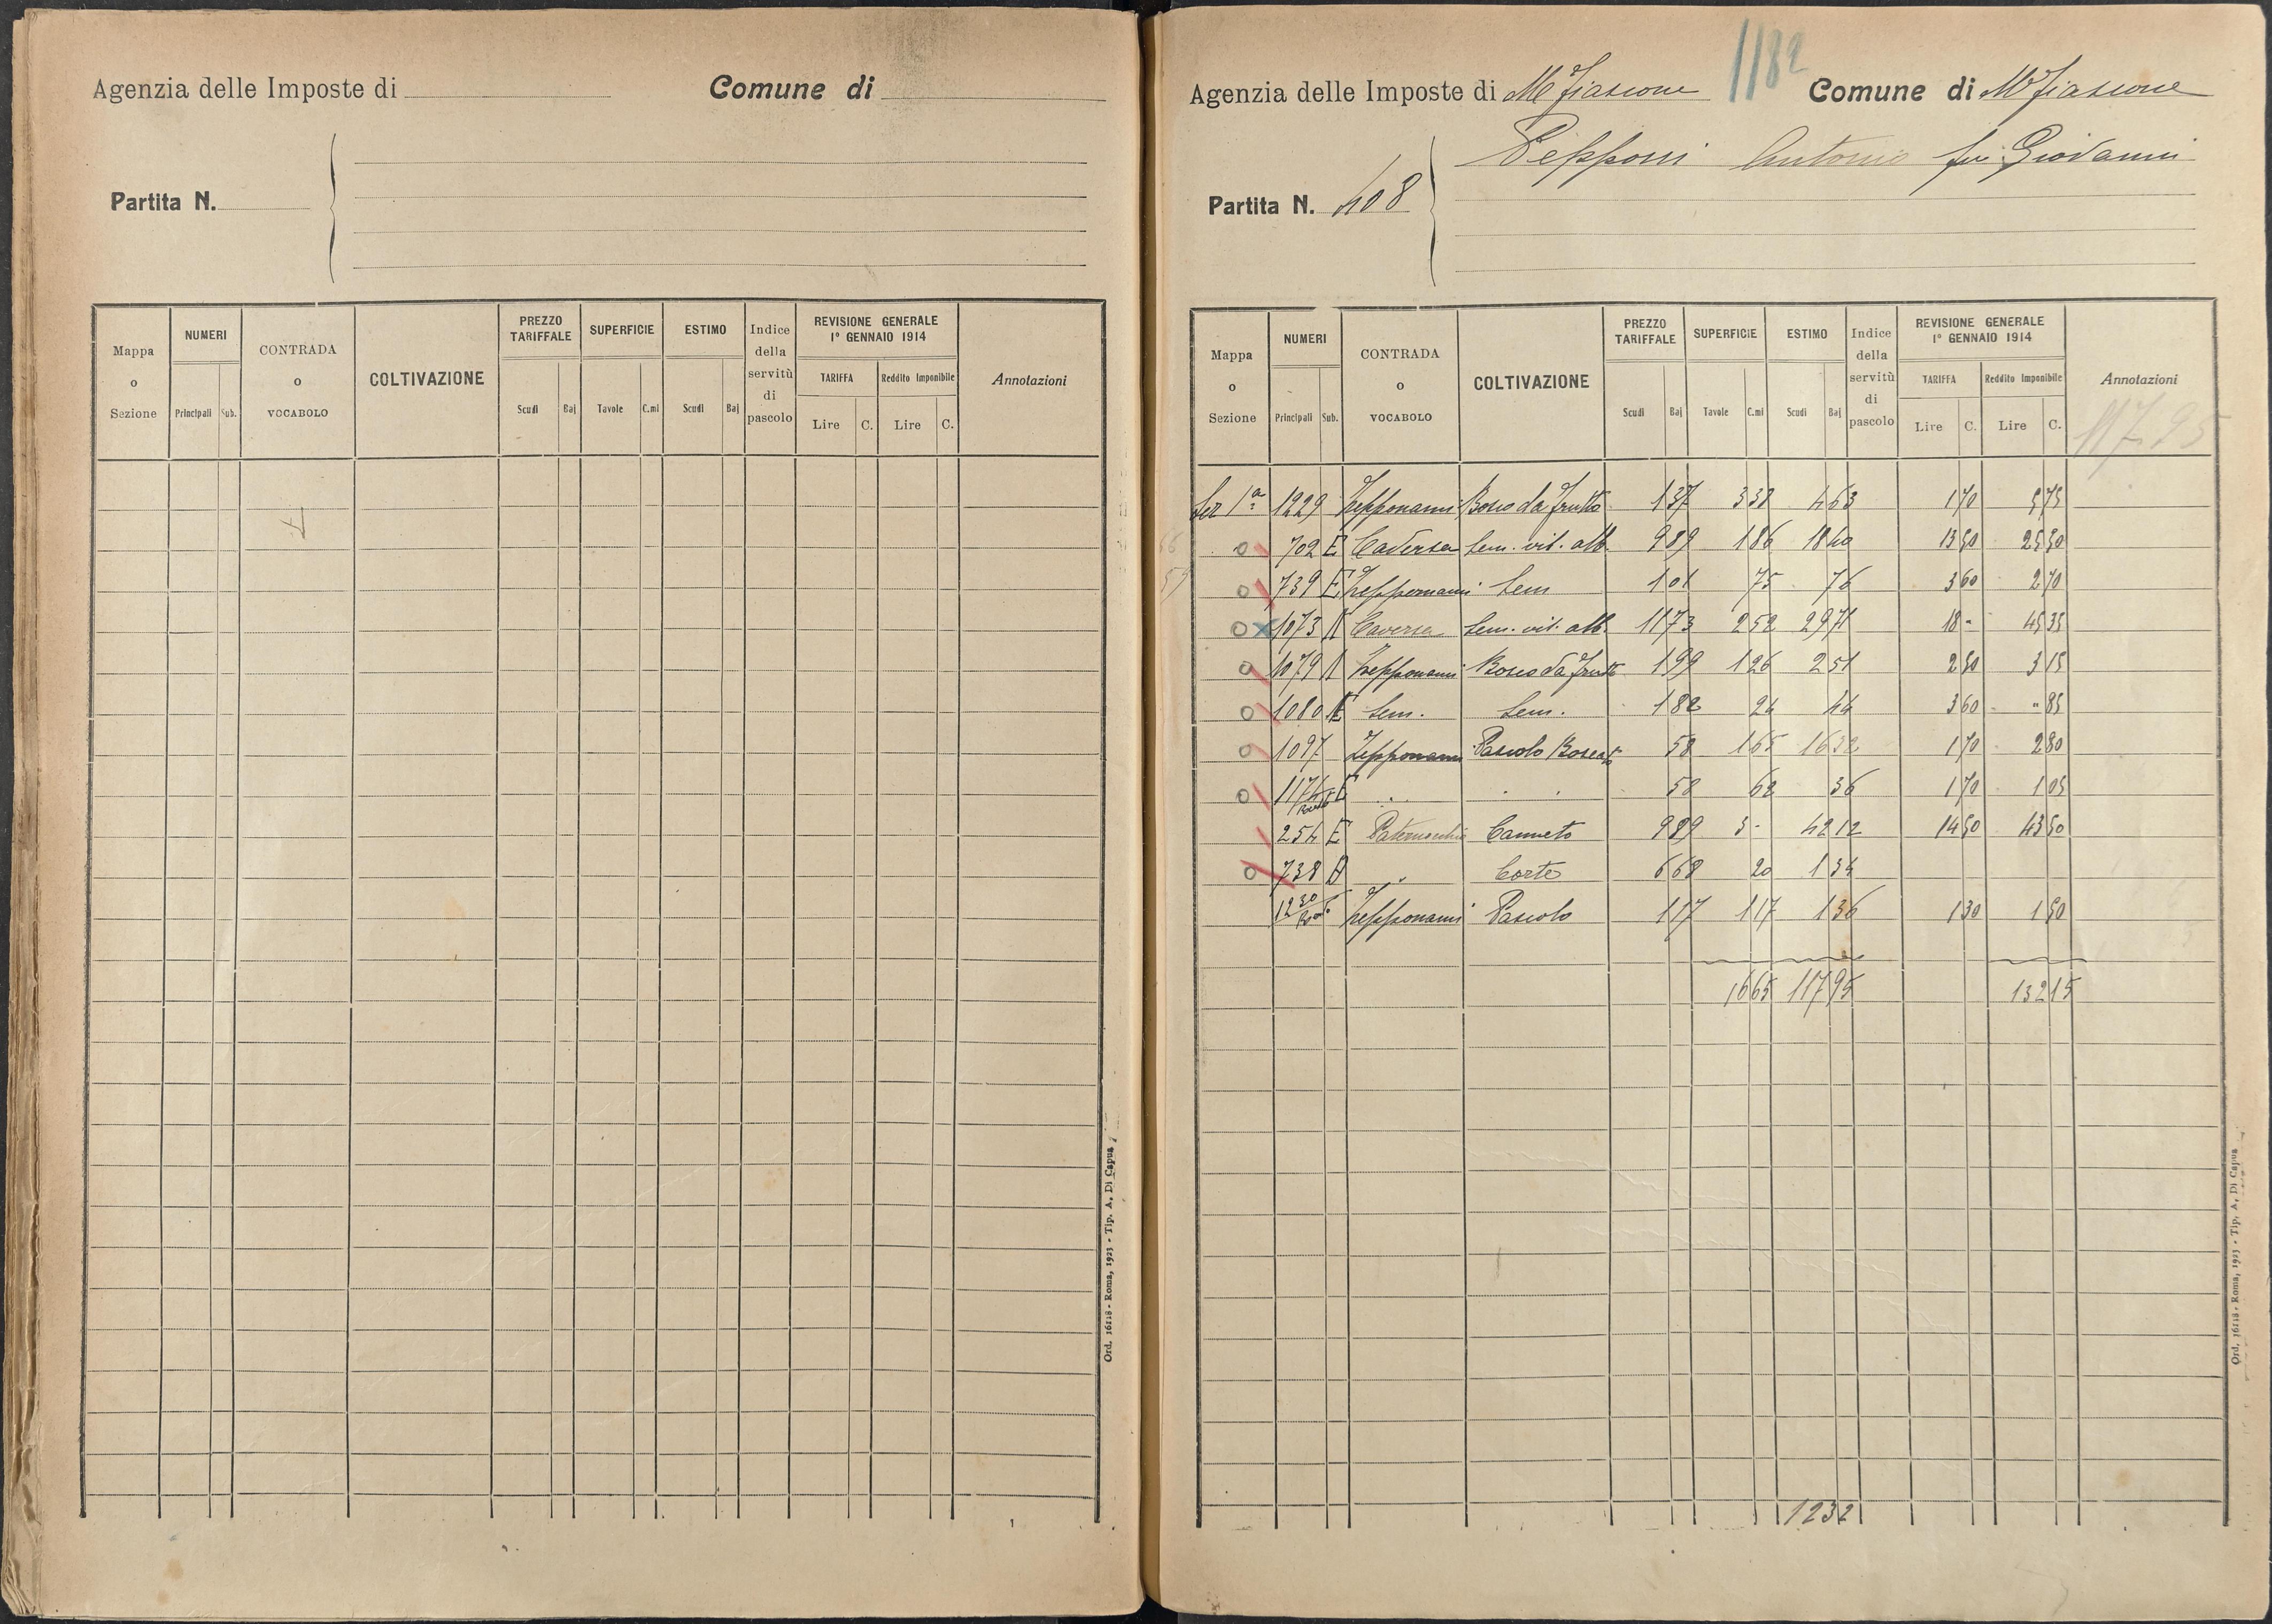 Agenzia delle Imposte di Comune di
Partita N.
Mappa o Sezione NUMERI Principali Sub. CONTRADA o VOCABOLO COLTIVAZIONE PREZZO TARIFFALE Scudi Baj SUPERFICIE Tavole C.mi ESTIMO Scudi Baj Indice della servitù di pascolo REVISIONE GENERALE 1° GENNAIO 1914 TARIFFA Lire C. Reddito Imponibile Lire C. Annotazioni
Ord. 16118 - Roma, 1923 - Tip. A. Di Capua
1182
Agenzia delle Imposte di M Fiascone Comune di M Fiascone
Pepponi Antonio fu Giovanni
Partita N. 408
Mappa o Sezione NUMERI Principali Sub. CONTRADA o VOCABOLO COLTIVAZIONE PREZZO TARIFFALE Scudi Baj SUPERFICIE Tavole C.mi ESTIMO Scudi Baj Indice della servitù di pascolo REVISIONE GENERALE 1° GENNAIO 1914 TARIFFA Lire C. Reddito Imponibile Lire C. Annotazioni
117.95
Sez 1ª 1229 Zepponami Bosco da frutto 1 37 3 38 4 63 1 70 5 75
702 E Caversa Sem. vit. alb. 9 89 1 86 18 40 13 50 25 30
739 E Zepponami Sem 1 01 75 76 3 60 2 70
1073 Caversa Sem. vit. alb. 11 73 2 52 29 71 18 - 45 35
1079 Zepponami Bosco da frutto 1 99 1 26 2 51 2 50 3 15
1080 Sem. Sem. 1 82 24 44 3 60 " 85
1097 Zepponami Pascolo Boscato 58 1 65 1 70 2 80
1174 58 62 36 1 70 1 05
254 E Canneto 9 89 3 - 42 12 14 50 43 50
738 " Corte 6 68 20 1 34
1230 Zepponami Pascolo 1 17 1 17 1 36 1 30 1 50
16 65 117 95 132 15
1232
Ord. 16118 - Roma, 1923 - Tip. A. Di Capua